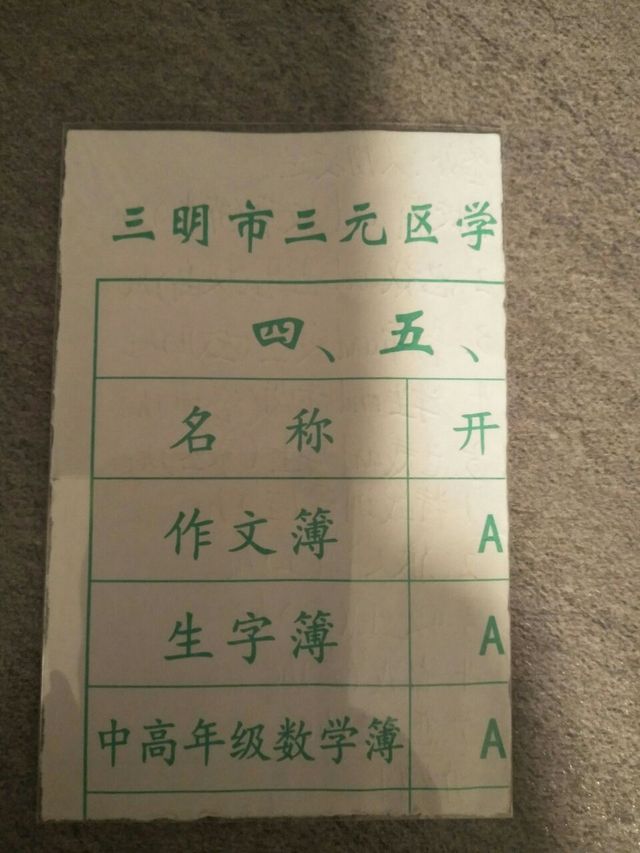 三明市三元区学
四、五、
名称 开
作文簿 A
生字簿 A
中高年级数学簿 A